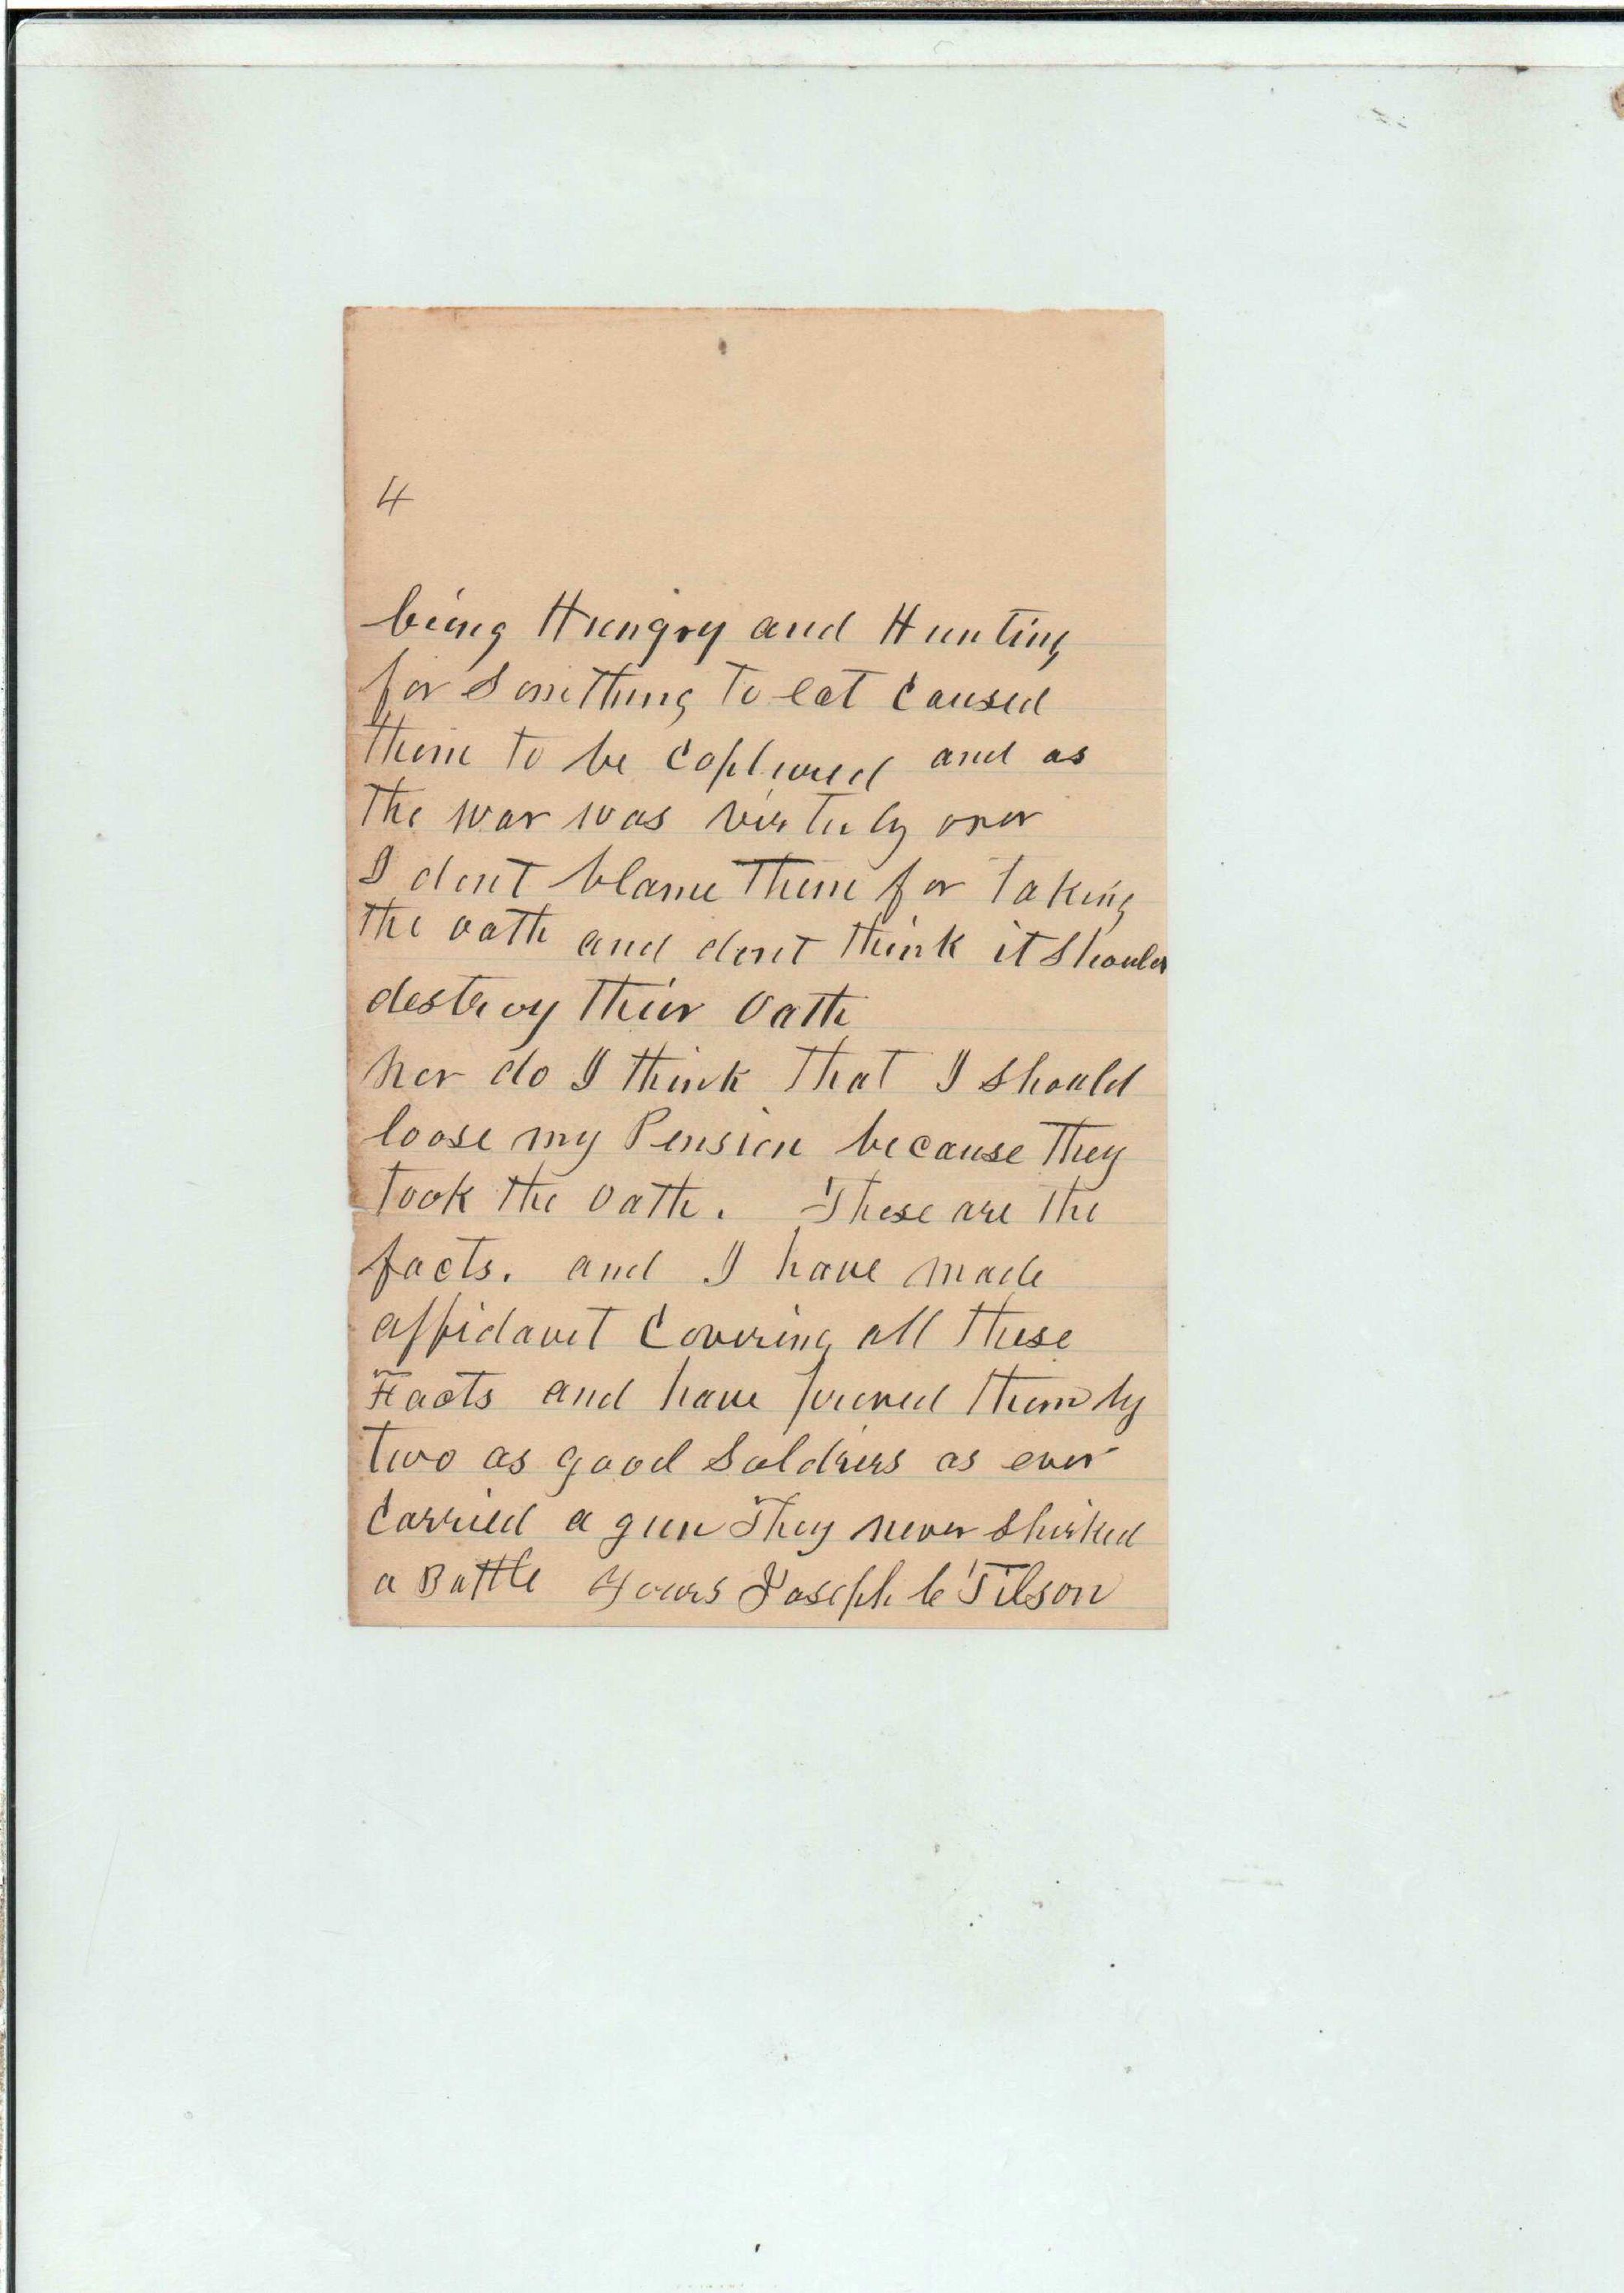 4
being Hungry and Hunting
for Something to eat Caused
them to be Captured and as
the war was virtuly over
I dont blame them for taking
the oath and dont think it Should
destroy thier Oath
nor do I think that I should
loose my Pension because they
took the Oath. These are the
facts. and I have made
affidavit Covering all these
Facts and have proved them by
two as good Soldiers as ever
Carried a gun They never Shirked
a Battle Yours Joseph C Tilson